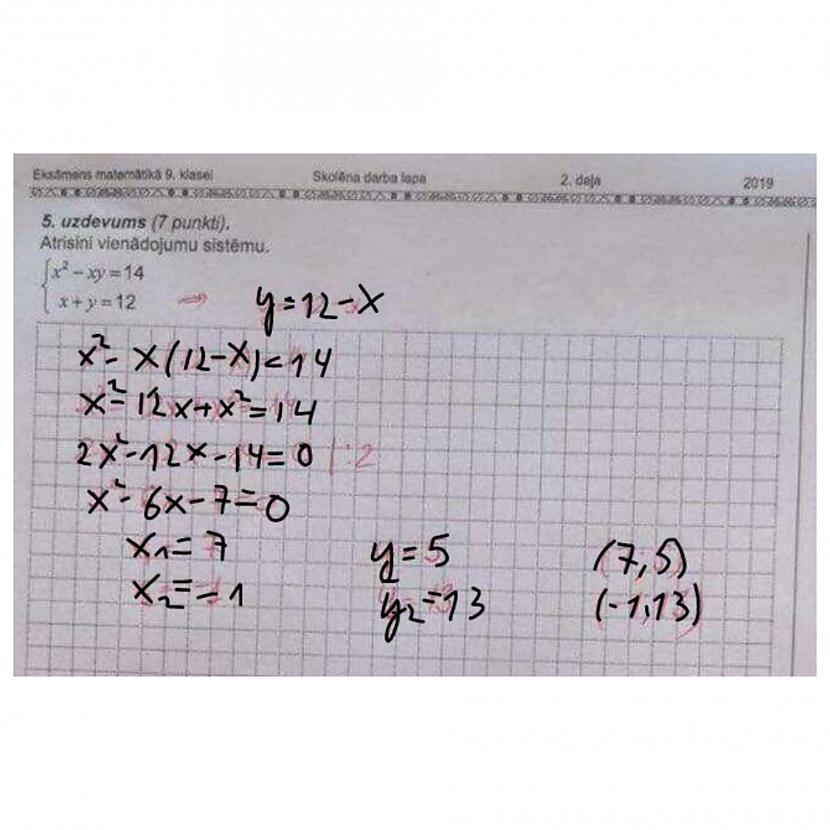 Eksāmens matemātikā 9. klasei Skolēna darba lapa 2. daļa 2019
5. uzdevums (7 punkti).
Atrisini vienādojumu sistēmu.
x² – xy = 14
x + y = 12 ⇒ y = 12 – x
x² - x(12-x) = 14
x² - 12x + x² = 14
2x² - 12x - 14 = 0 | : 2
x² - 6x - 7 = 0
x₁ = 7 y = 5 (7, 5)
x₂ = -1 y₂ = 13 (-1, 13)